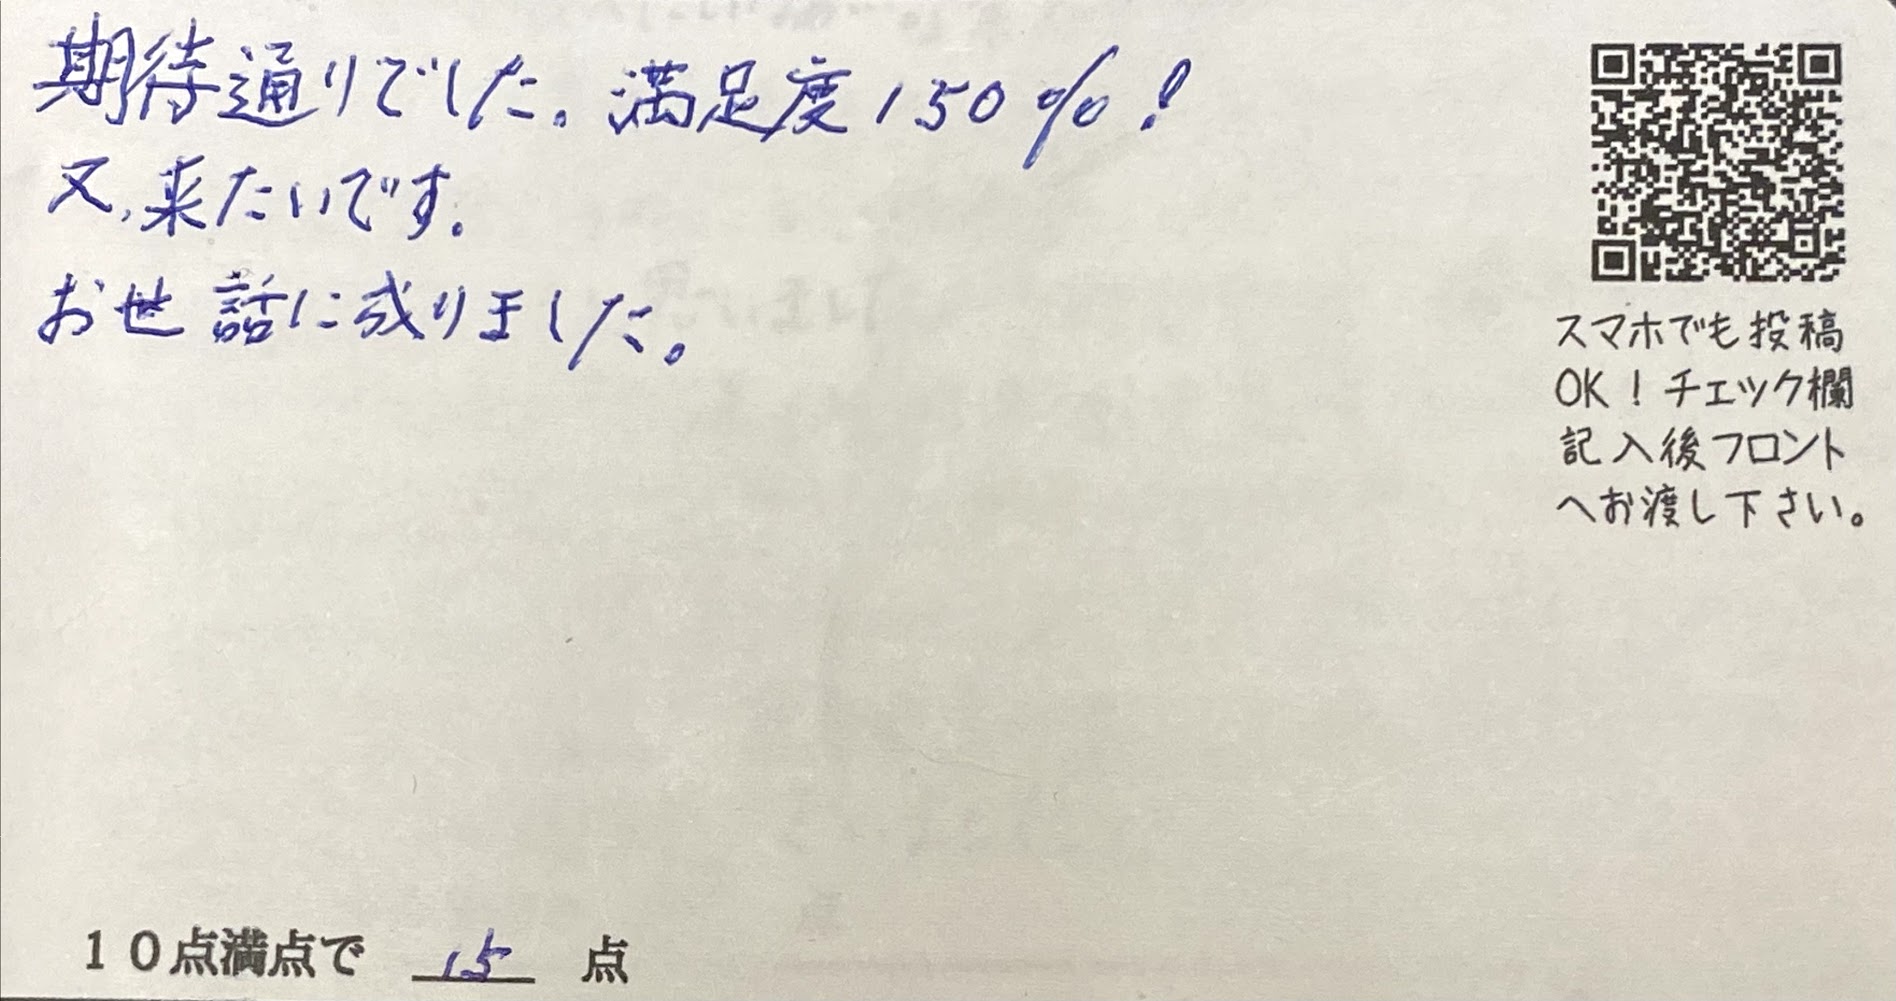 期待通りでした。満足度150%!
又、来たいです。
お世話に成りました。
スマホでも投稿
OK！チェック欄
記入後フロント
へお渡し下さい。
10点満点で 15 点